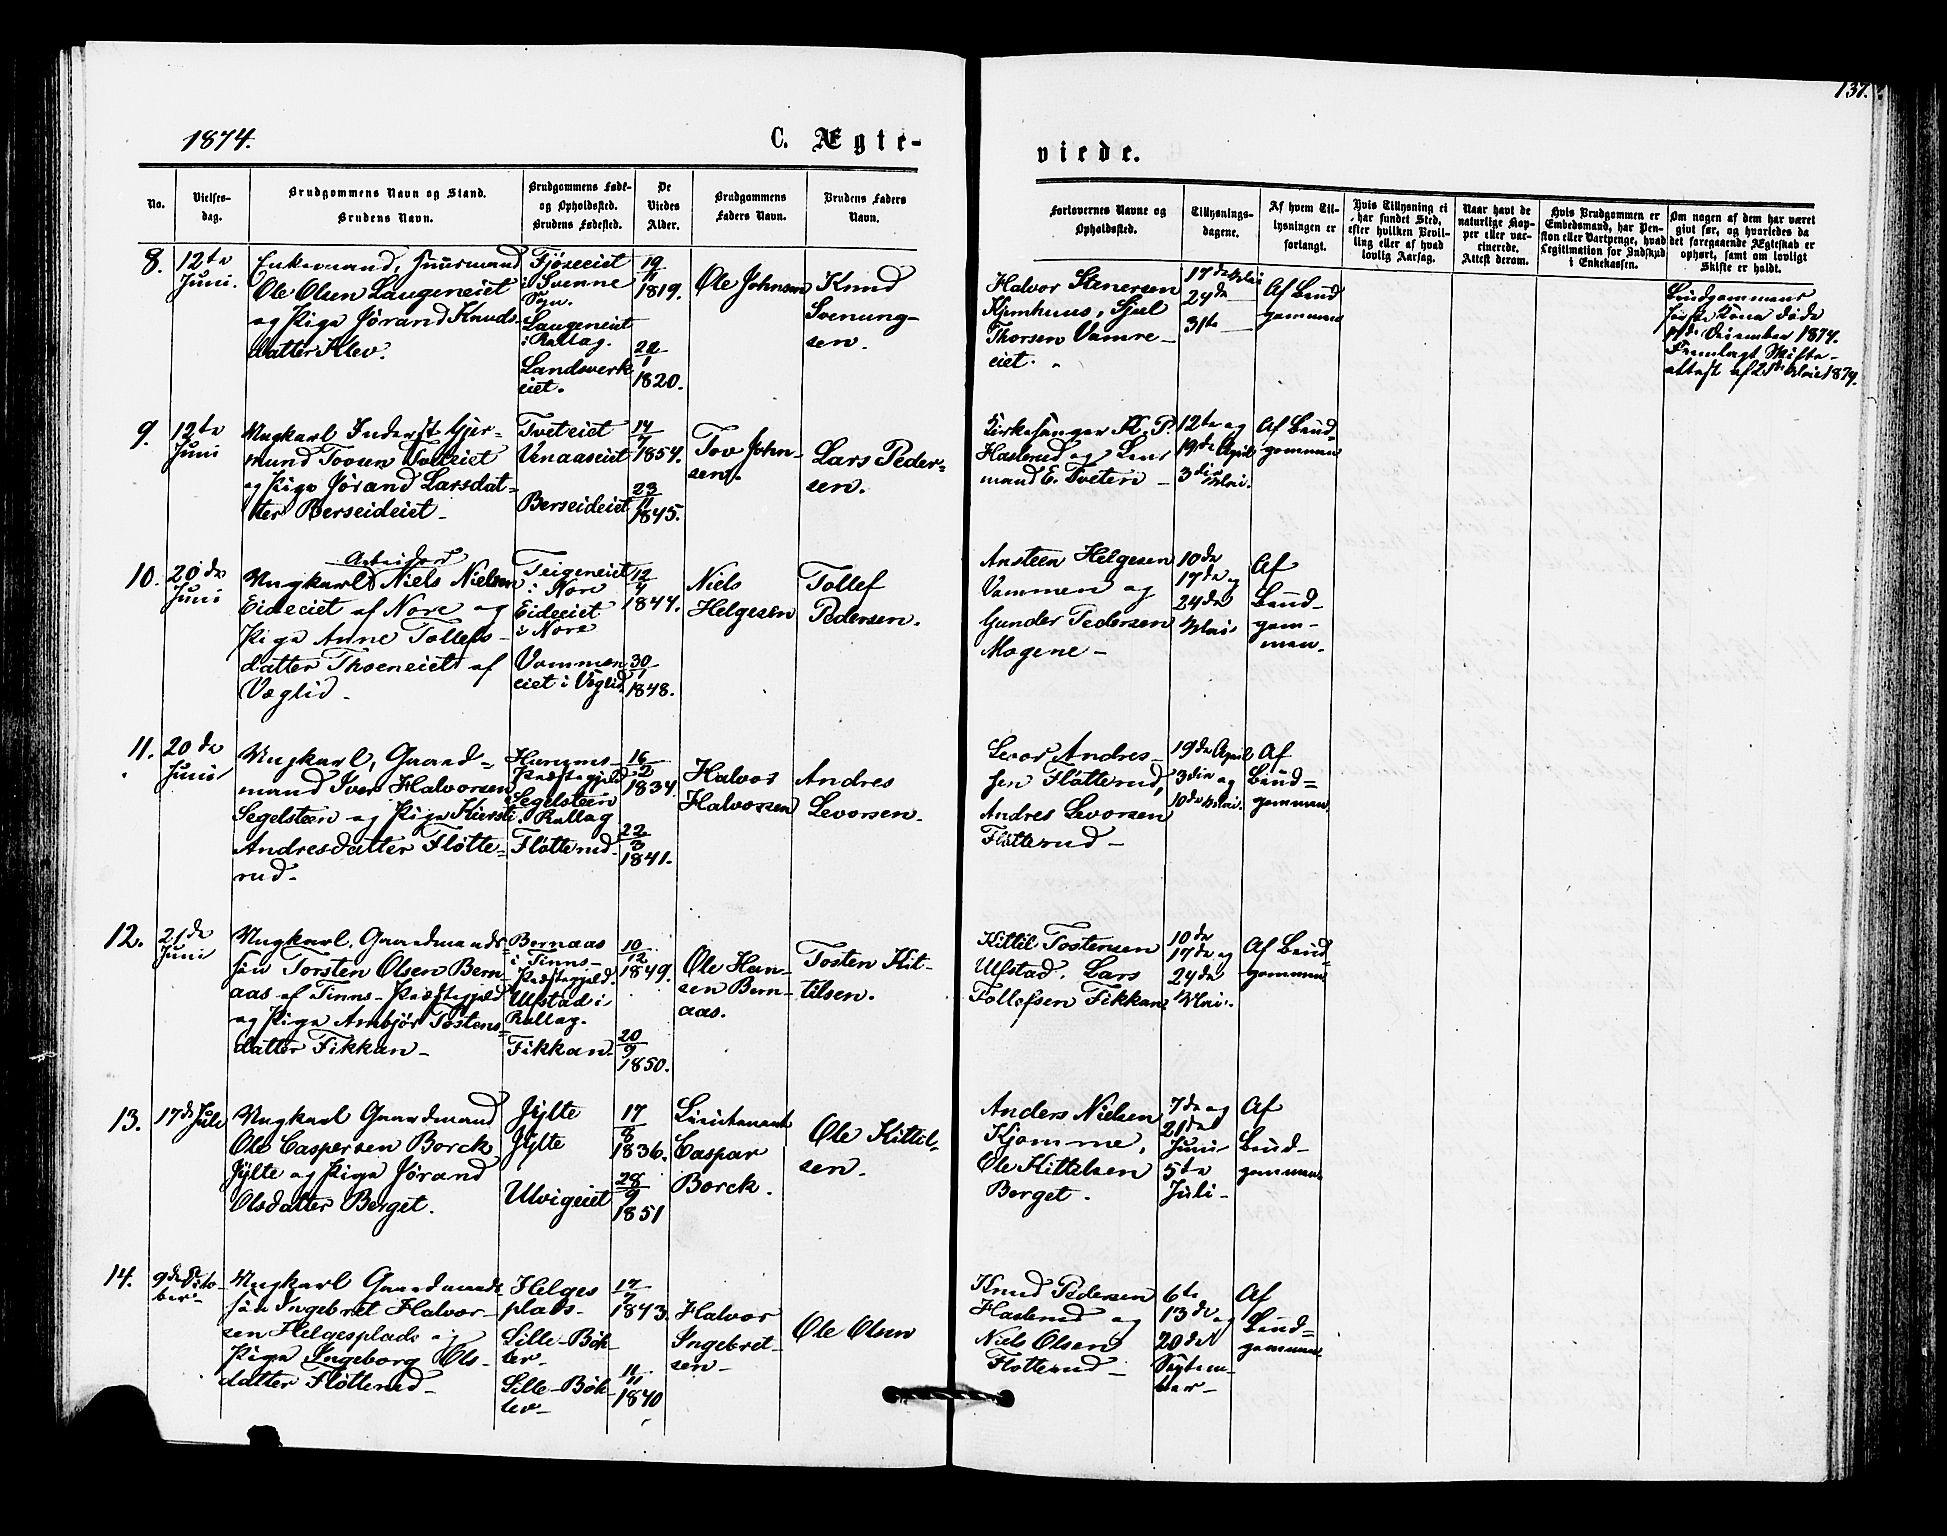 137.
1874.
C. Ægte-
viede.
No.
Vielses-
dag.
Brudgommens Navn og Stand.
Brudens Navn.
Brudgommens Føde-
og Opholdssted.
Brudens Fødested.
De
Viedes
Alder.
Brudgommens
Faders Navn.
Brudens Faders
Navn.
Forlovernes Navne og
Opholdssted.
Tillysnings-
dagene.
Af hvem Til-
lysningen er
forlangt.
Hvis Tillysning ei
har fundet Sted,
efter hvilken Bevil-
ling eller af hvad
lovlig Aarsag.
Naar havt de
naturlige Kop-
per eller vac-
cinerede.
Attest derom.
Hvis Brudgommen er
Embedsmand, har Pen-
sion eller Vartpenge, hvad
Legitimation for Indskud
i Enkekassen.
Om nogen af dem har været
gift før, og hvorledes da
det foregaaende Ægteskab er
ophørt, samt om lovligt
Skifte er holdt.
8.
12te
Juni.
Enkemand, Huusmand
Ole Olsen Laugeneiet
og Pige Jørand Knuds-
datter Klev.
Fjøseeiet
i Svenne
Sogn.
Laugeneiet
i Rollag.
Landsverk
eiet.
19/11
1819.
22/1
1820.
Ole Johnsen
Knud
Svenung-
sen.
Halvor Stenersen
Kjemhuus, Sjul
Thorsen Vamre-
eiet.
17de Mai
24de —
31te —
Af Brud
gommen
Brudgommens
første Kone døde
December 1874.
Fremlagt Skifte-
attest af Mai 1874.
9.
12te
Juni
Ungkarl Inderst Gjer-
mund Tovsen Tveteiet
og Pige Jørand Larsdat-
ter Berseideiet -
Tveteiet
Venaaseiet
Berseideiet
14/7
1854.
23/11
1845.
Tov John-
sen.
Lars Peder-
sen.
Kirkesanger K. P.
Hasterud og Lens
mand E. Tveten -
12te og
19de April
3die Mai.
Af Brud-
gommen
10.
20de
Juni
Arbeider
Ungkarl Niels Nielsen
Eideeiet af Nore og
Pige Anne Tollefs-
datter Thoeneiet af
Væglid -
Teigeneiet
i Nore
Eideeiet
i Nore
Vammen
eiet i Væglid
12/4
1844.
30/1
1848.
Niels
Helgesen
Tollef
Pedersen.
Ansteen Helgesen
Vammen og
Gunder Pedersen
Mogene -
10de
17de og
24de
Mai
Af
Brud-
gom-
men.
11.
20de
Juni
Ungkarl, Gaard-
mand Iver Halvorsen
Segelsteen og Pige Kiersti
Andresdatter Fløtte-
rud -
Præstegjeld
Segelsteen
i Rollag
Fløtterud
16/2
1834.
22/3
1841.
Halvor
Halvorsen
Andres
Levorsen -
Levor Andres-
sen Fløtterud,
Andres Levorsen
Fløtterud -
19de April
3die og
10de Mai.
Af
Brud-
gommen
12.
21de
Juni
Ungkarl. Gaardmands-
søn Torsten Olsen Bern
aas af Tinns-Præstegjeld
og Pige Ambjør Tostens-
datter Fikkan -
Bernaas
i Tinns-
Præstegjeld.
Ulfstad i
Rollag.
Fikkan -
10/12
1849.
20/9
1850.
Ole Han-
sen Bern-
aas.
Tosten Kit-
tilsen.
Kittil Tostensen
Ulfstad. Lars
Tollefsen Fikkan
10de
17de og
24de
Mai.
Af Brud-
gommen
13.
17de Juli
Ungkarl Gaardmand
Ole Caspersen Borck
Jylte og Pige Jørand
Olsdatter Berget.
Jylte
Jylte
Ulvigeiet
17/8
1836.
28/9
1851
Lieutenant
Caspar
Borck.
Ole Kittil-
sen -
Anders Nielsen
Kjomme,
Ole Kittelsen
Berget.
7de og
21de
Juni
5te
Juli -
Af
Brud-
gommen
14.
9de Octo-
ber -
Ungkarl Gaardmands
søn Ingebret Halvor-
sen Helgesplads og
Pige Ingeborg Ols-
datter Fløtterud -
Helges
plads -
Lille-Bøk-
ler -
Lille-Bøk
ler -
17/7
1843.
11/11
1840
Halvor
Ingebret-
sen -
Ole Olsen
Knud Pedersen
Hasterud og
Niels Olsen
Fløtterud -
6te
13de og
20de
Septem-
ber -
Af
Brud-
gommen